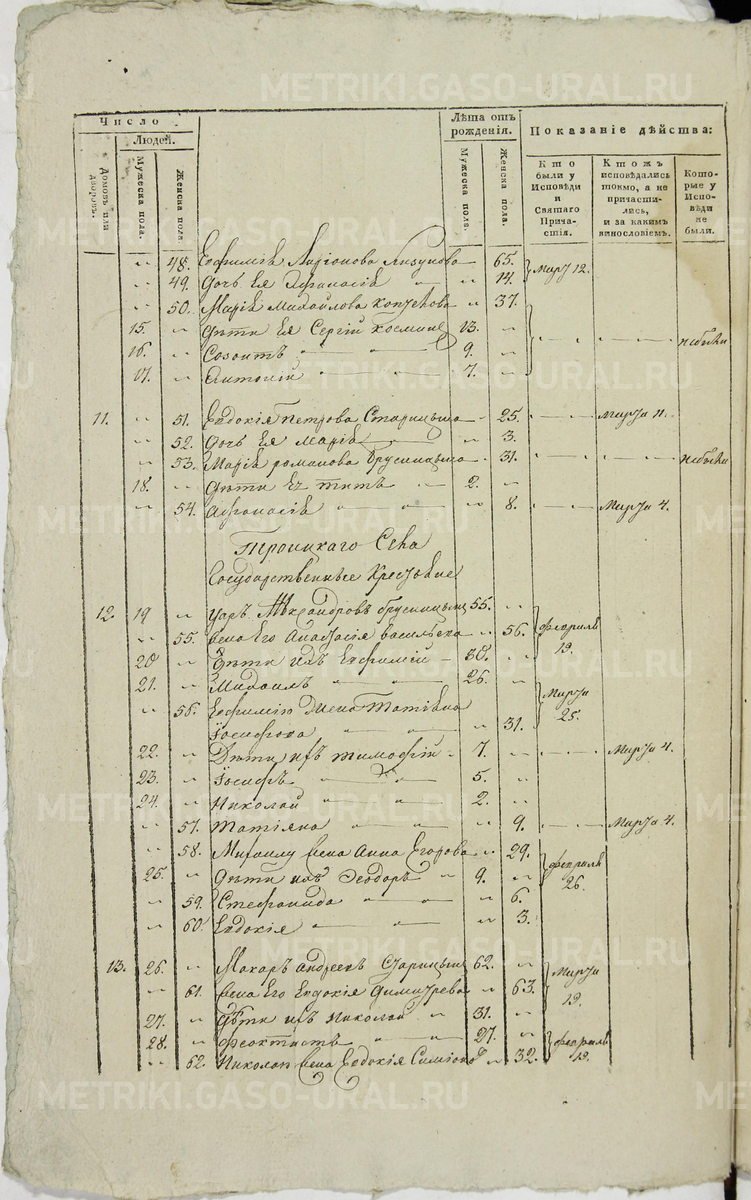 METRIKI.GASO-URAL.RU
Число
Людей.
Домовъ или дворовъ.
Мужеска пола.
Женска пола.
Лѣта отъ рожденія.
Мужеска пола.
Женска пола.
Показаніе дѣйства:
Кто были у Исповѣди и Святаго Причастія.
Ктожъ исповѣдались токмо, а не причастились, и за какимъ винословіемъ.
Которые у Исповѣди не были.
48. Евфимія Ларіонова 65. Март 12.
49. Дочь Ея Афанасія 14.
50. Марія Михайлова 37.
15. Дѣти Ея Сергій Космины 13. небыли
16. Созонтъ 9.
17. Антоній 7.
11. 51. Евдокія Петрова Старицына 25. Марта 11.
52. Дочь Ея Марія 3.
53. Марія Романова Брусницына 31. небыли
18. Дѣти Ея Титъ 2.
54. Афанасія 8. Марта 4.
Троицкаго Села
Государственные Крестьяне
12. 19 Александровъ Брусницынъ 55.
55. жена Его Анастасія Васильева 56. февраль 19.
20 Дѣти ихъ Евфимій 30.
21. Михаилъ 26.
56. Евфимію жена Татіяна Марта 25.
Іосифова 31.
22. Дѣти ихъ Тимофей 7. Марта 4.
23. Іосифъ 5.
24. Николай 2.
57. Татіяна 9. Марта 4.
58. Михаилу жена Анна Егорова 29. февраль 26.
25. Дѣти ихъ Ѳеодоръ 9.
59. Стефанида 6.
60. Евдокія 3.
13. 26. Макаръ Андреевъ Старицынъ 62. Марта 19.
61. жена Его Евдокія Димитрева 63.
27. Дѣти ихъ Николай 31.
28. Феоктистъ 27. февраль 19.
62. жена Евдокія 32.